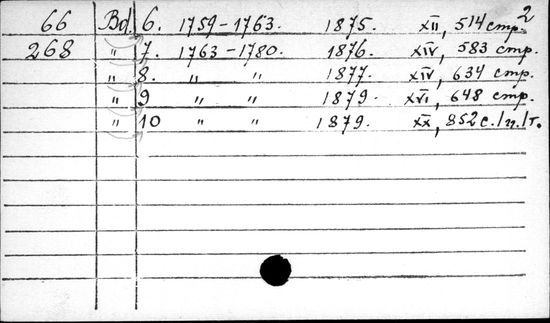 2
66 Bd. 6. 1759-1763. 1875. XII, 514 стр.
268 " 7. 1763-1780. 1876. XIV, 583 стр.
" 8. " " 1877. XIV, 634 стр.
" 9 " " 1879. XVI, 648 стр.
" 10 " " 1879. XX, 852 с./п./т.